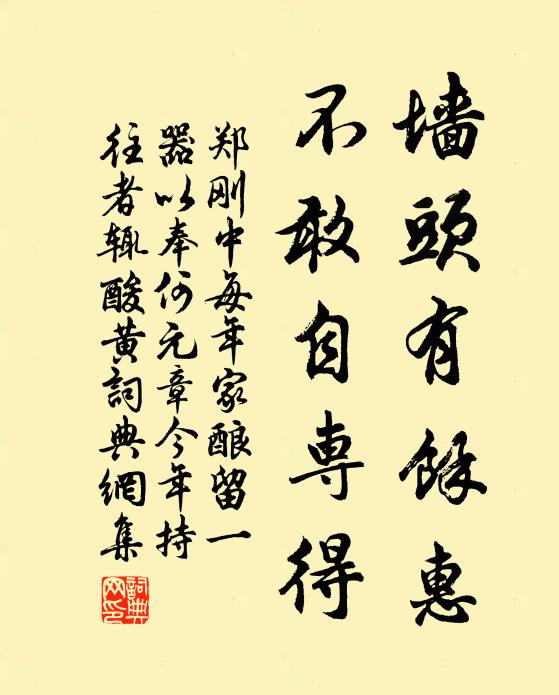 墙頭有餘惠
不敢自専得
郑刚中每年家酿留一
器以奉何元章今年持
往者辄酸黄詞典網集
詞典网印